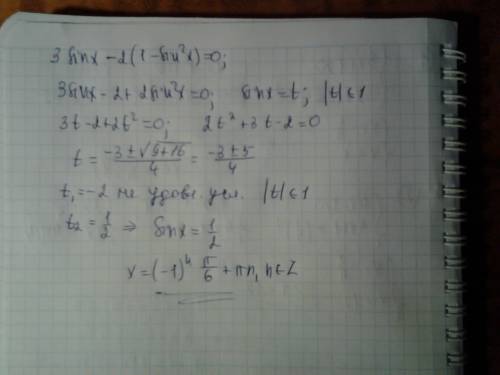 3 sinx - 2(1 - sin²x) = 0;
3 sinx - 2 + 2 sin²x = 0; sinx = t; |t| ≤ 1
3t - 2 + 2t² = 0; 2t² + 3t - 2 = 0
t = (-3 ± √(9+16))/4 = (-3 ± 5)/4
t₁ = -2 не удовл. усл. |t| ≤ 1
t₂ = 1/2 ⇒ sinx = 1/2
x = (-1)ⁿ π/6 + πn, n ∈ Z